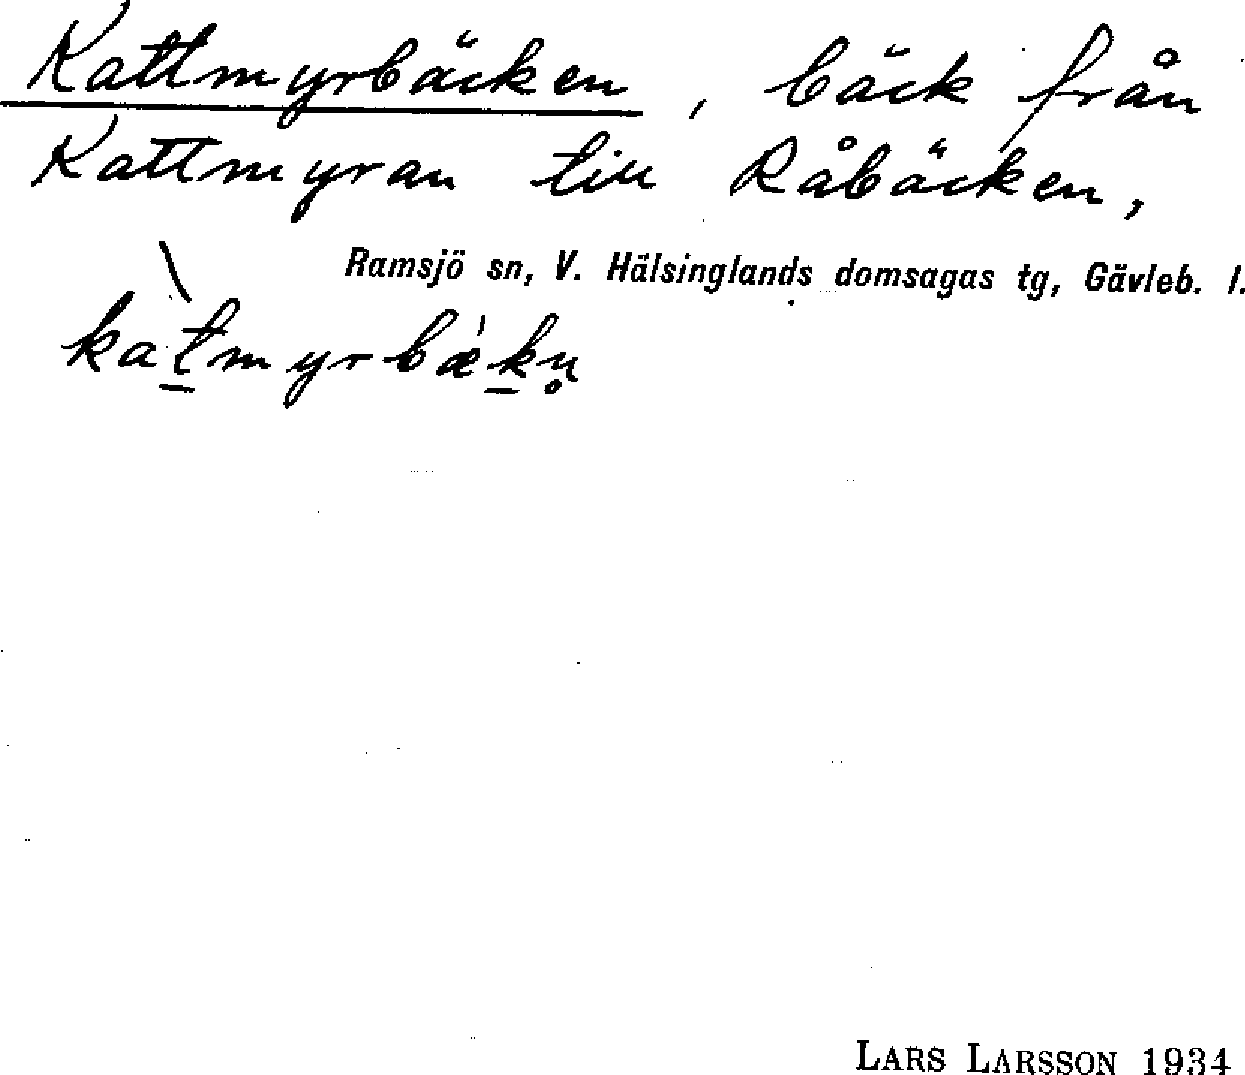 Kattmyrbäcken, bäck från
Kattmyran till Råbäcken,
Ramsjö sn, V. Hälsinglands domsagas tg, Gävleb. l.
kat̠myrbæ̀k̠n̥
LARS LARSSON 1934